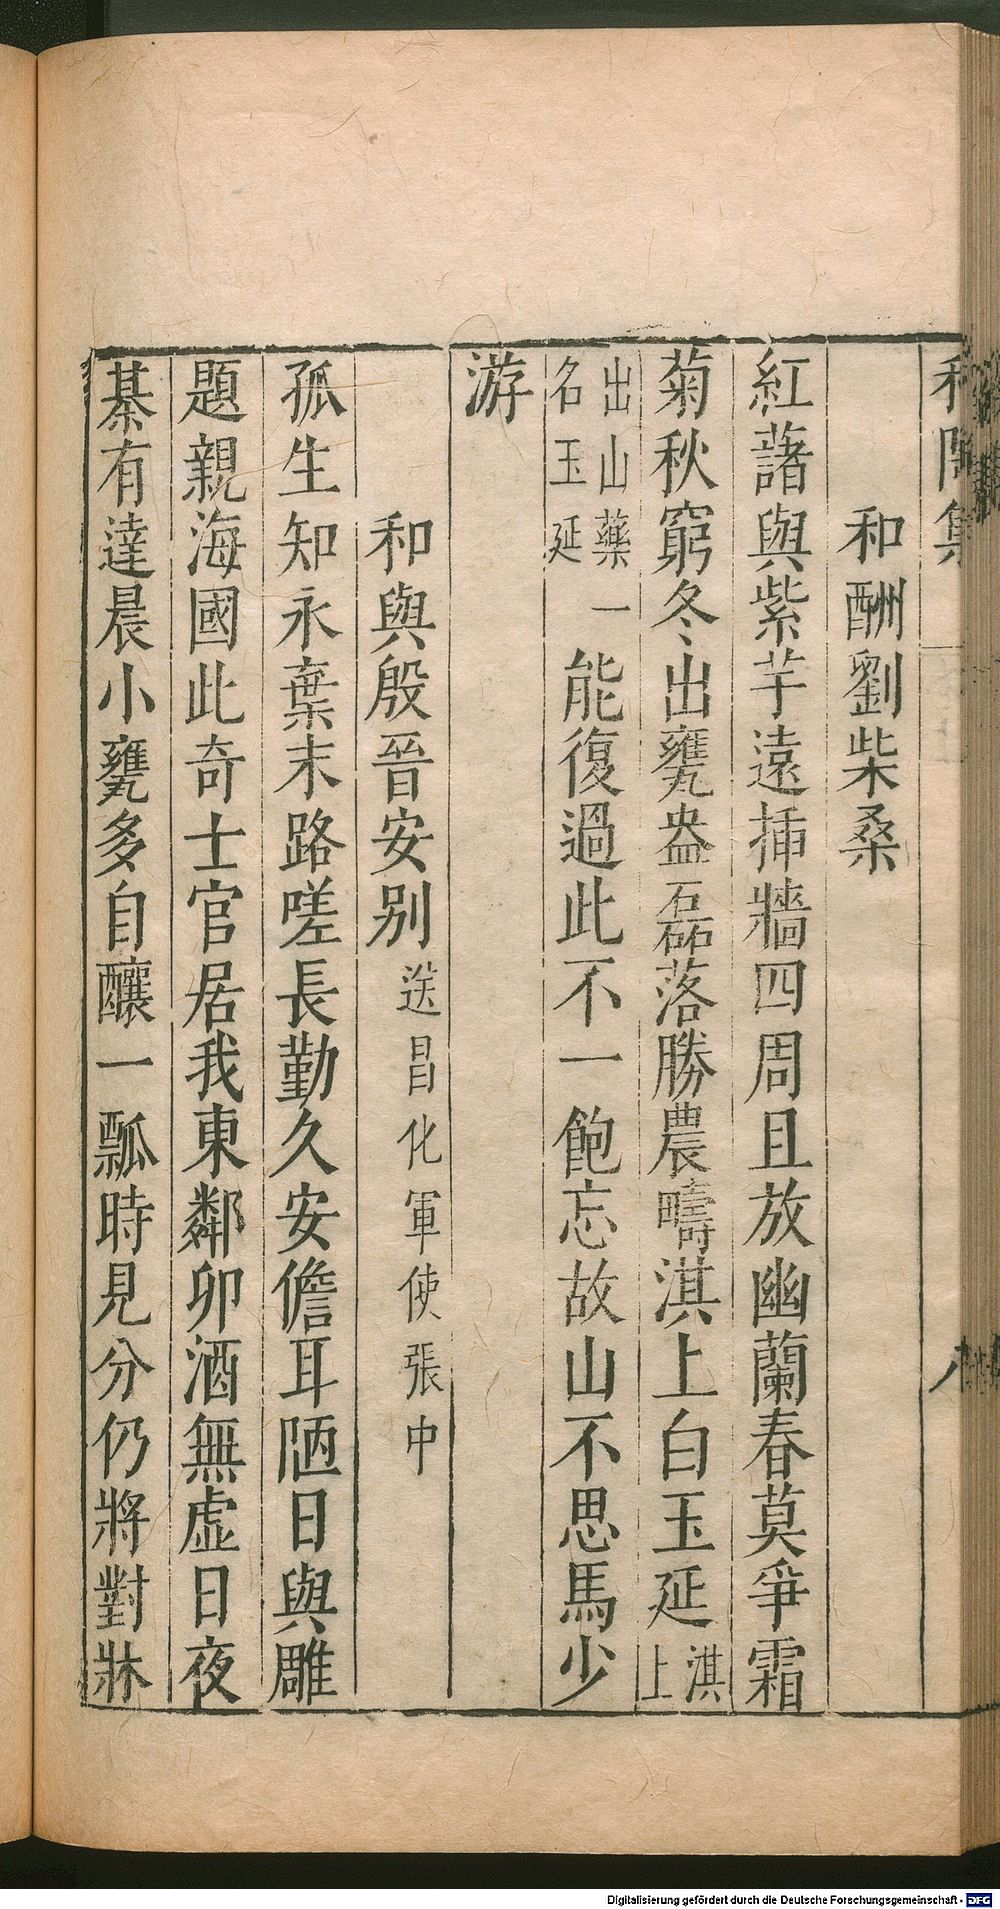 和陶集
和酬劉柴桑
紅藷與紫芋遠揷牆四周且放幽蘭春莫爭霜
菊秋窮冬出甕盎磊落勝農疇淇上白玉延淇上
出山藥一名玉延能復過此不一飽忘故山不思馬少
游
和與殷晉安别送昌化軍使張中
孤生知永棄末路嗟長勤久安儋耳陋日與雕
題親海國此奇士官居我東鄰卯酒無虚日夜
棊有達晨小甕多自釀一瓢時見分仍將對牀
Digitalisierung gefördert durch die Deutsche Forschungsgemeinschaft - DFG